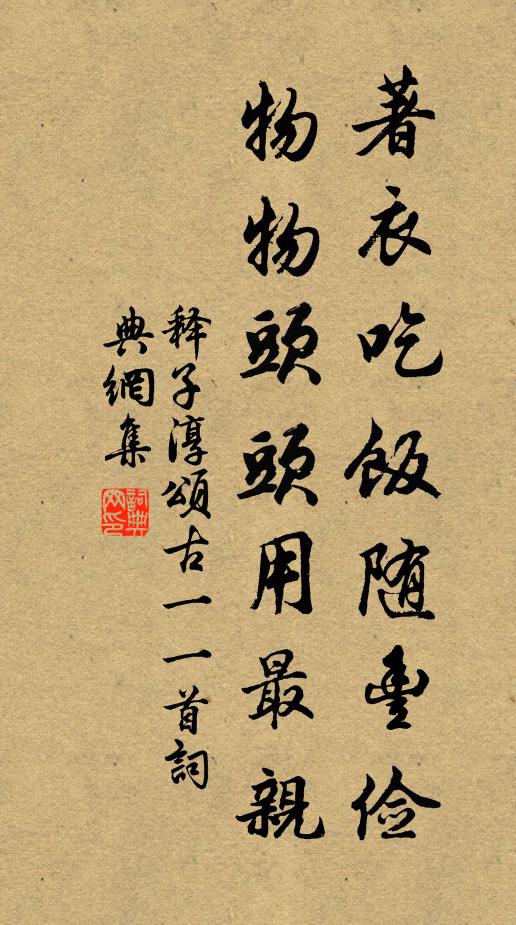 著衣吃飯随豊儉
物物頭頭用最親
释子淳頌古一一首詞
典網集
詞典
网印